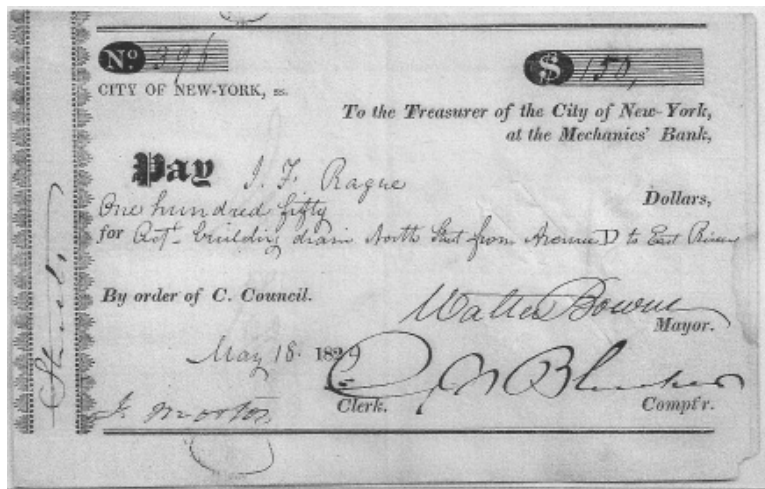 No 396
$ 150,
CITY OF NEW-YORK, ss.
To the Treasurer of the City of New-York,
at the Mechanics' Bank,
Pay J. F. Rague
One hundred fifty Dollars,
for acct. building drain North Street from Avenue D to East River
By order of C. Council.
Walter Bowne
Mayor.
May 18. 1829
J. Morton
Clerk.
Compt'r.
Streets